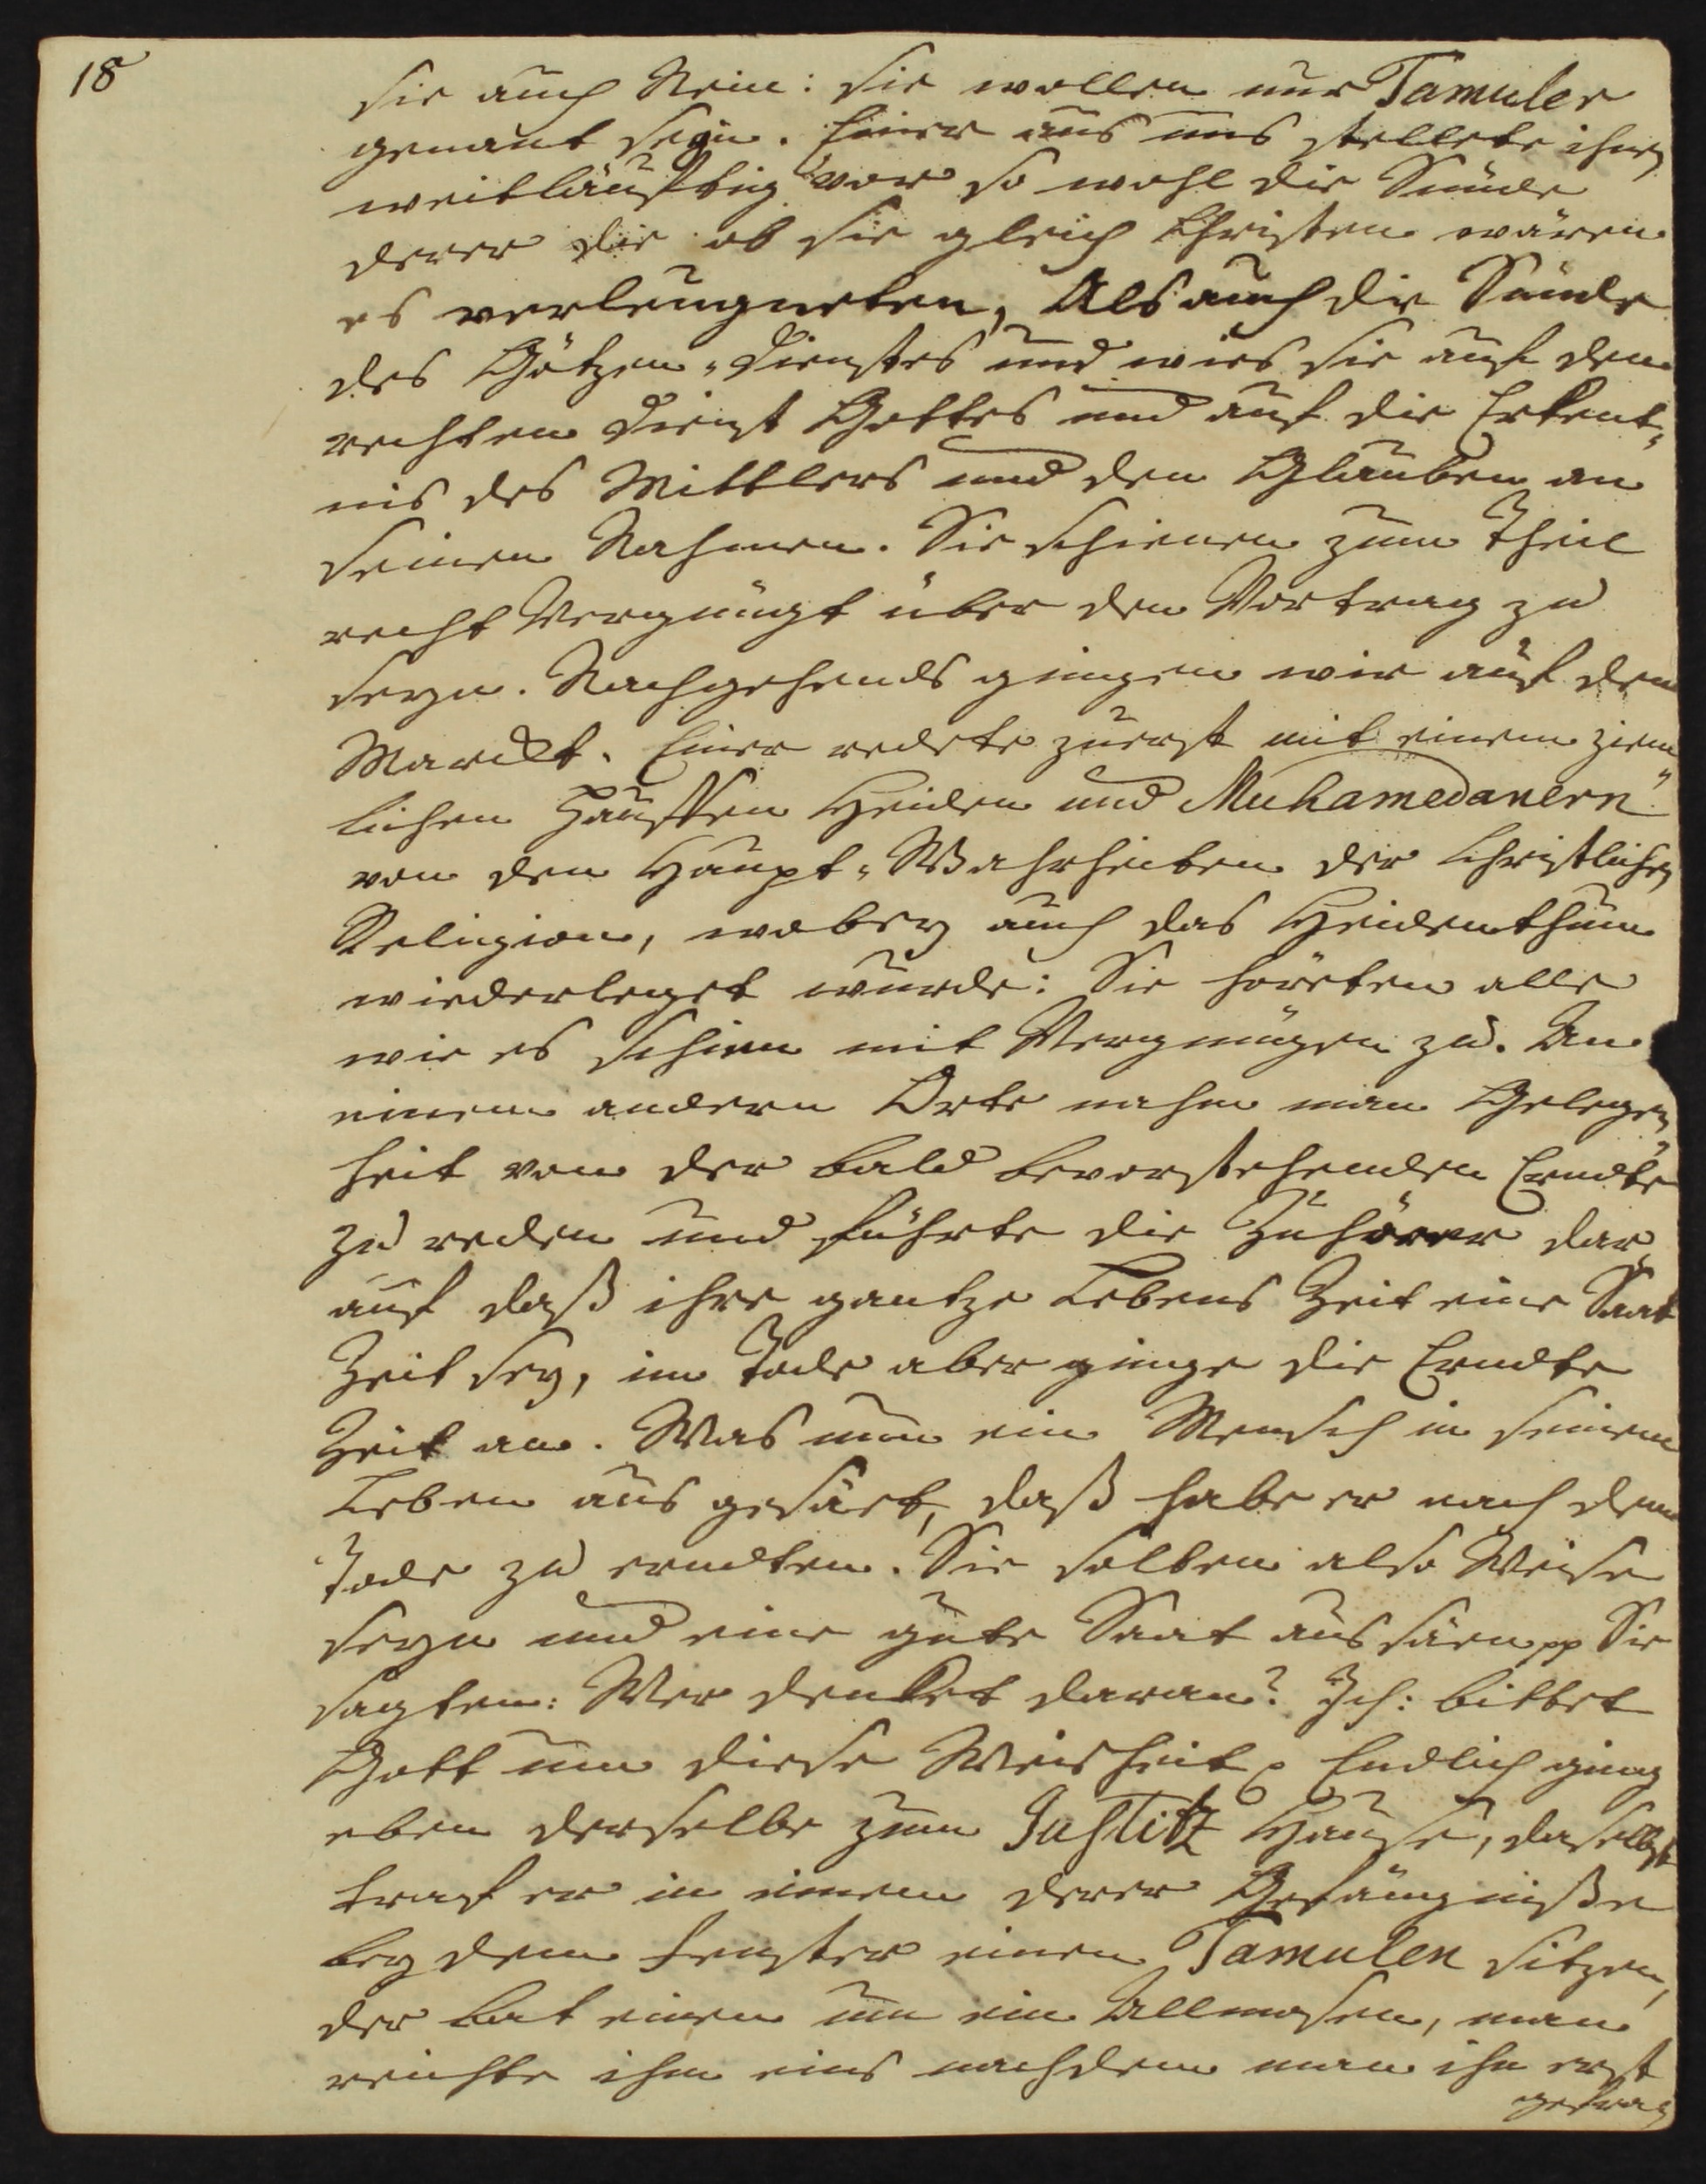 18
sie auch Nein: sie wollen nur Tamuler
genant seyn. Einer aus uns stellete ihnen
weitläufftig vor so wohl die Sünde
derer die ob sie gleich Christen wären
es verleugneten, Als auch die Sünde
des Götzen-Dienstes und wies sie auf den
rechten Dienst Gottes und auf die Erkent-
nis des Mittlers und den Glauben an
seinen Nahmen. Sie schienen zum Theil
recht Vergnügt über den Vortrag zu
seyn. Nachgehends gingen wir auf den
Marckt. Einer redete zuerst mit einem ziem-
lichen Hauffen Heiden und Muhamedanern
von den Haupt-Wahrheiten der Christlichen
Religion, wobey auch das Heidenthum
wiederleget wurde: Sie höreten alle
wie es schien mit Vergnügen zu. An
einem andern Orte nahm man Gelegen-
heit von der bald bevorstehenden Erndte
zu reden und führte die Zuhörer dar-
auf daß ihre gantze Lebens Zeit eine Saat
Zeit sey, im Tode aber ginge die Erndte
Zeit an. Was nun ein Mensch in seinem
Leben aus gesäet, daß habe er nach dem
Tode zu erndten. Sie solten also Weise
seyn und eine gute Saat aus säen pp Sie
sagten: Wer dencket daran? Ich: bittet
Gott um diese Weisheit p Endlich ging
eben derselbe zum Justitz Hause, daselbst
traf er in einem derer Gefängniße
bey dem Fenster einen Tamulen sitzen,
der bat einen um ein Allmosen, man
reichte ihm eins nachdem man ihn erst
gefrag